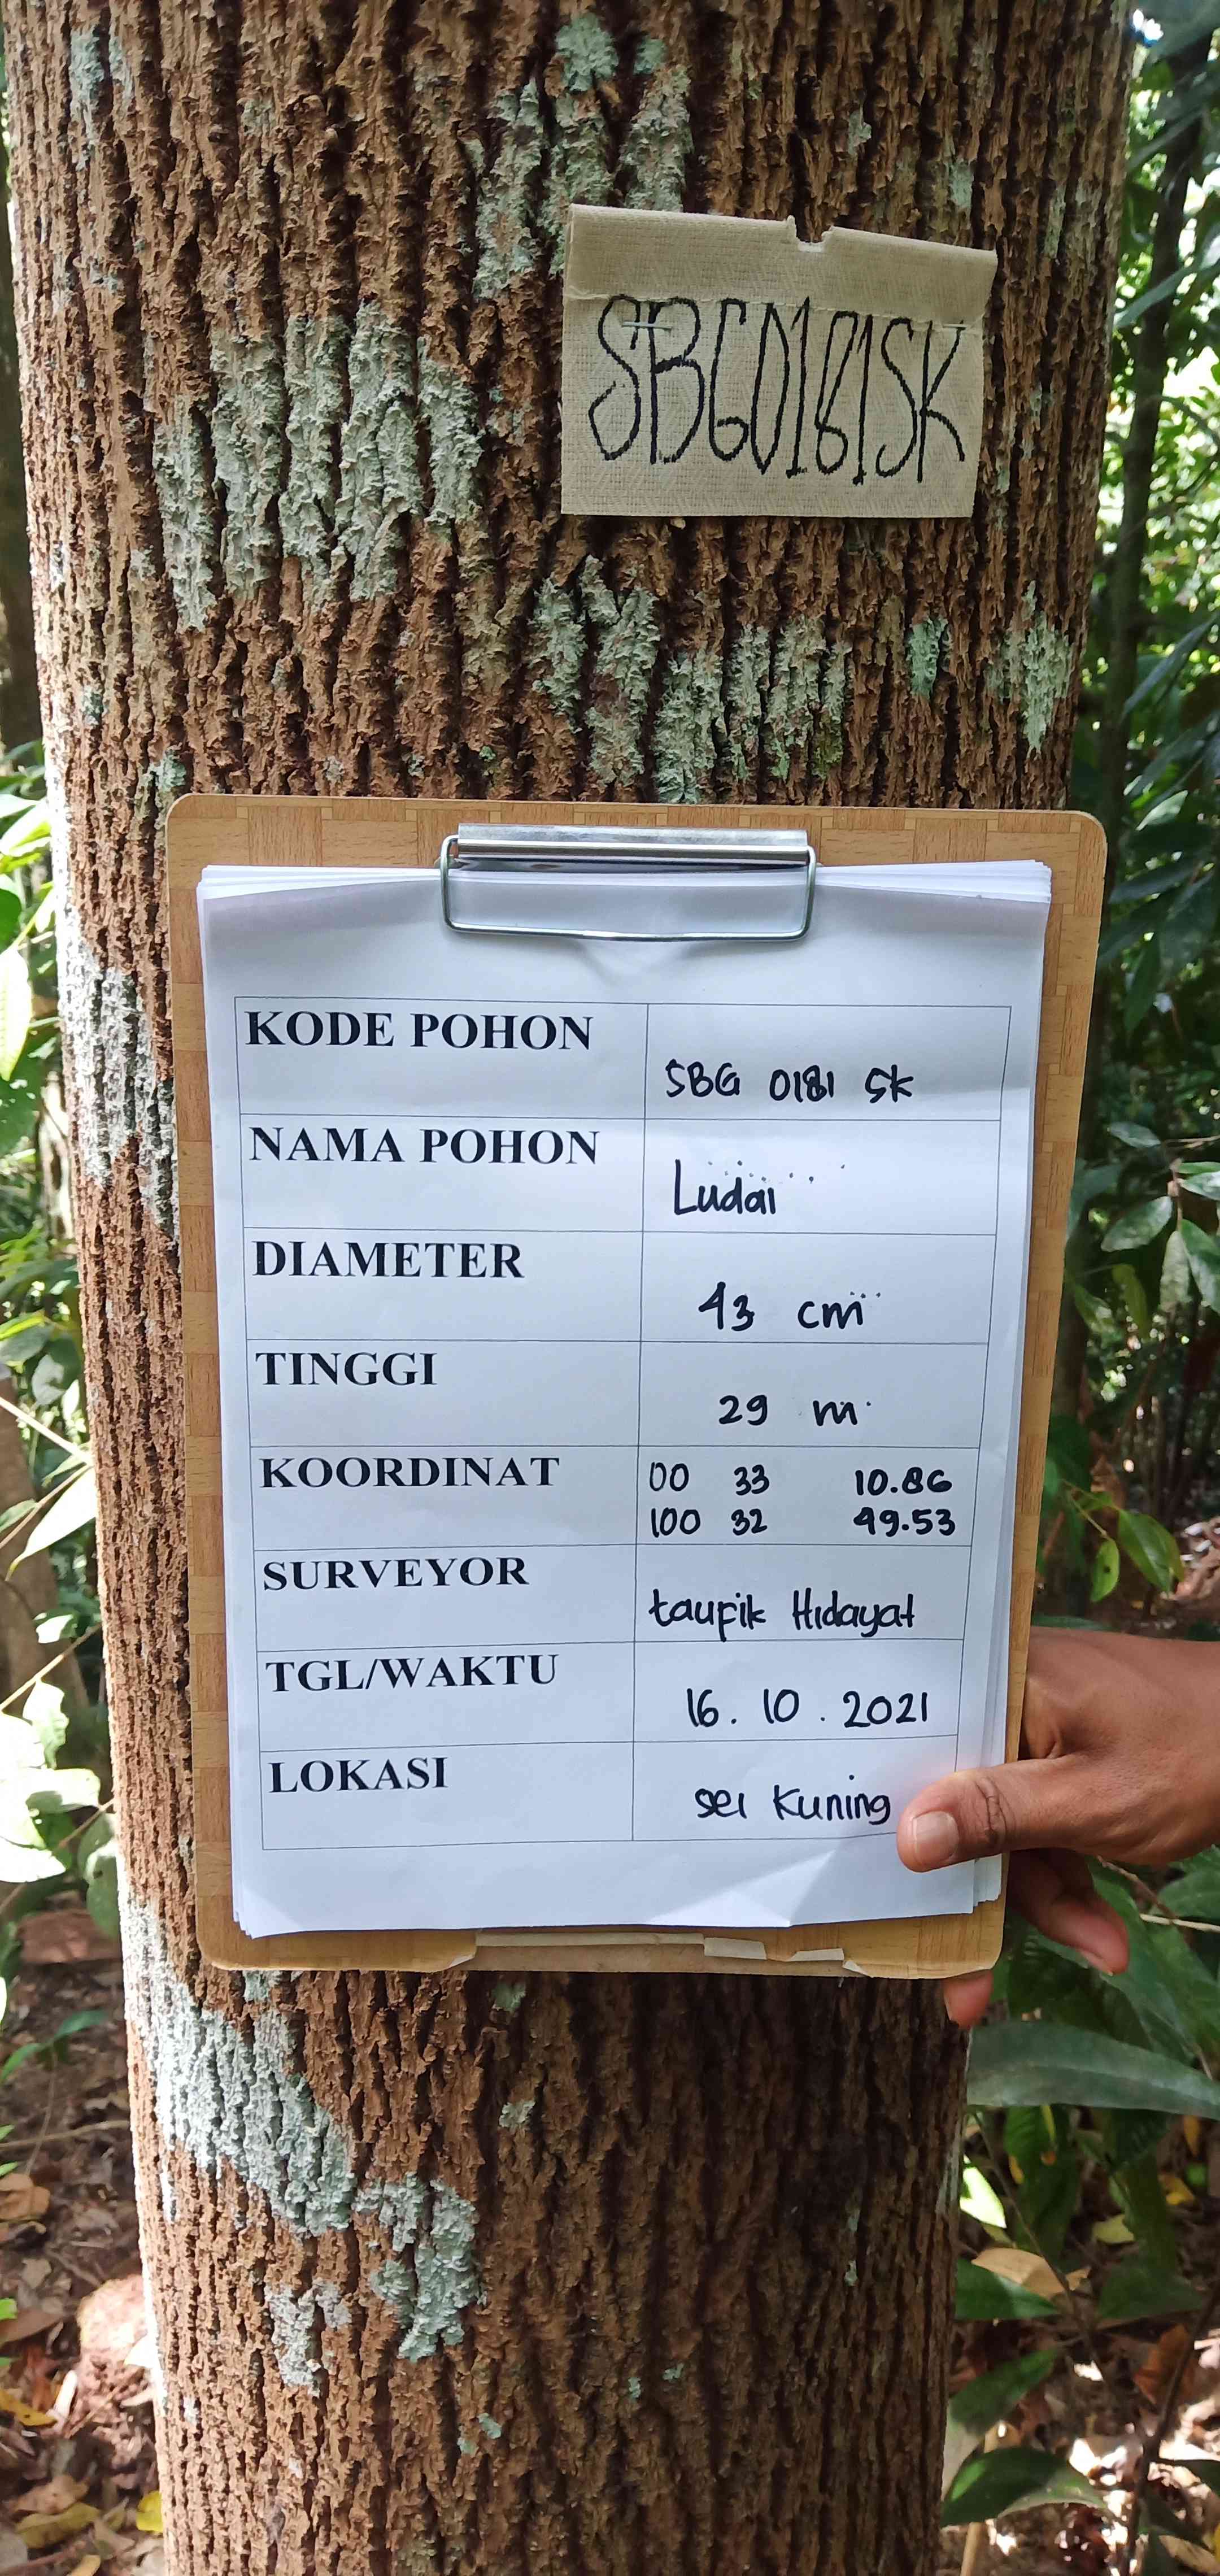 SBG0181SK
KODE POHON SBG 0181 SK
NAMA POHON Ludai
DIAMETER 43 cm
TINGGI 29 m
KOORDINAT 00 33 10.86
100 32 49.53
SURVEYOR taufik Hidayat
TGL/WAKTU 16.10.2021
LOKASI sei Kuning